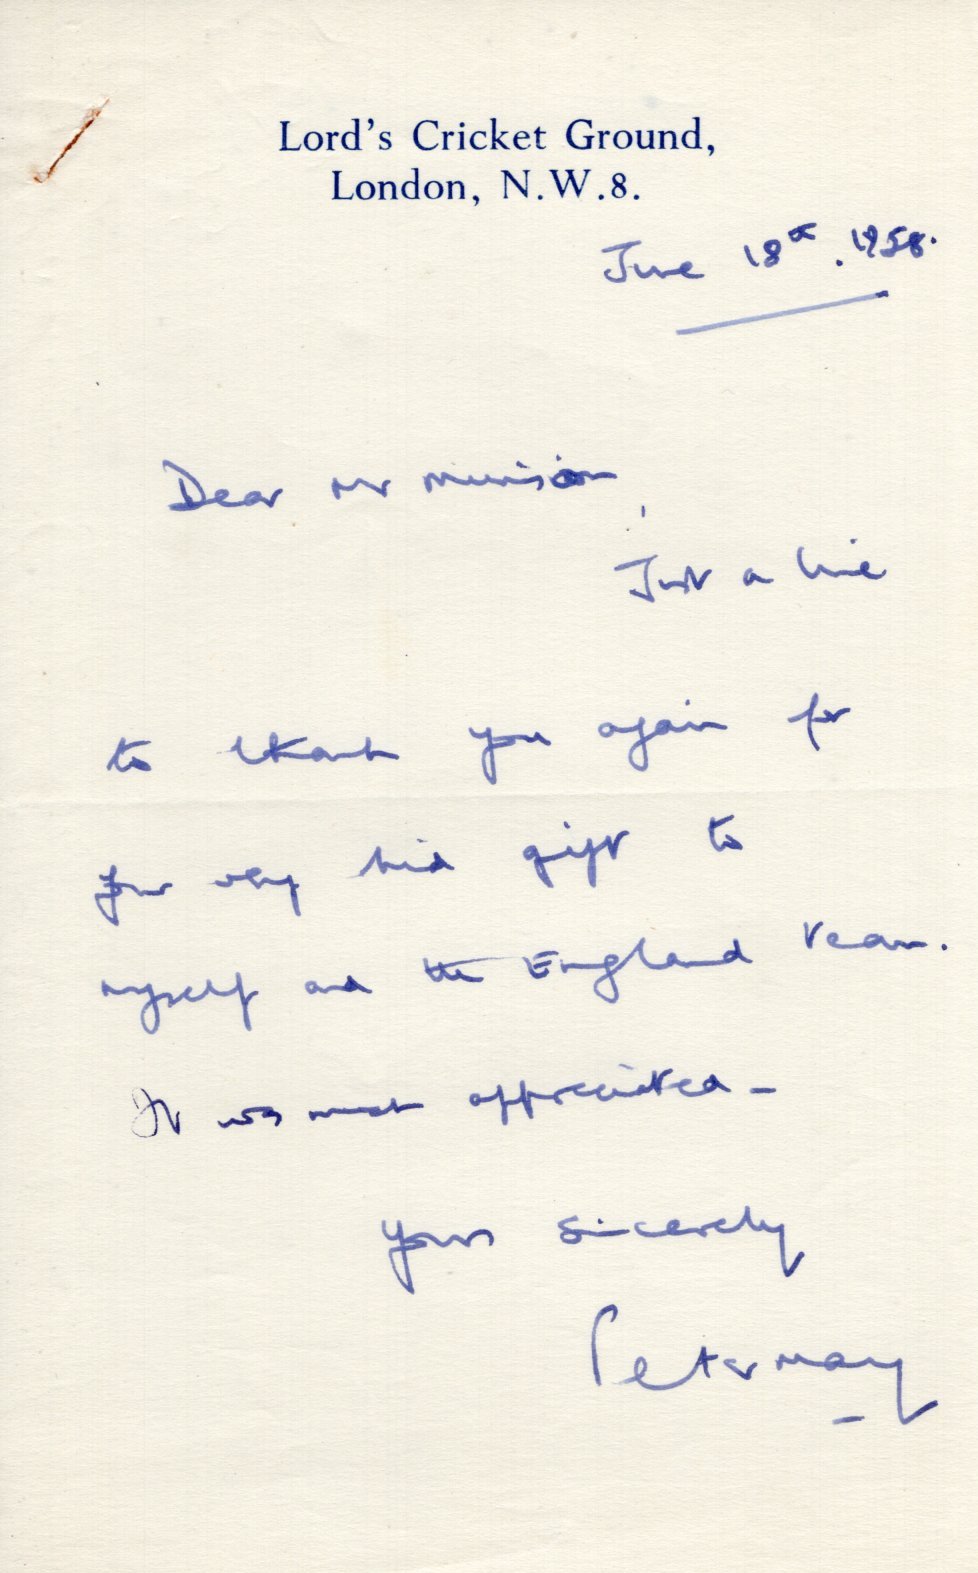 Lord's Cricket Ground,
London, N.W.8.
June 18th. 1958.
Dear Mr
Just a line
to thank you again for
your very kind gift to
myself and the England team.
It was much appreciated -
Yours sincerely
Peter May